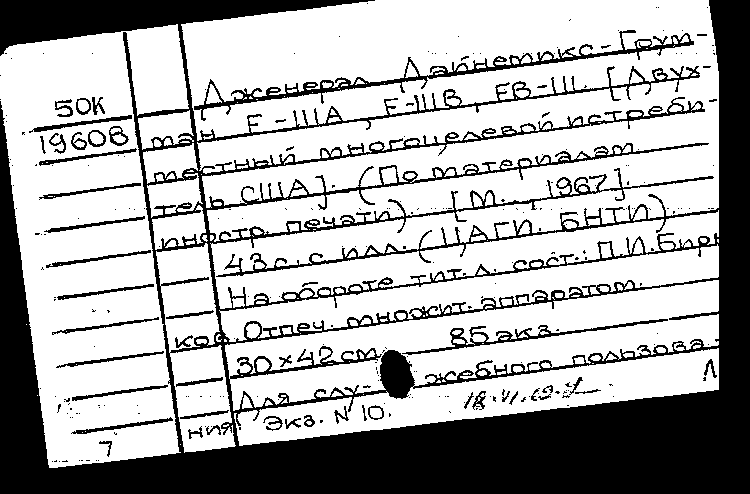 Дженерал Дайнемикс-Грум-
50К
19608
ман F-111A, F-111B, FB-111. [Двух-
местный многоцелевой истреби-
тель США]. (По материалам
иностр. печати). [М., 1967].
43 с. с илл. (ЦАГИ. БНТИ).
На обороте тит. л. сост.: П.И.Бирю
ков. Отпеч. множит. аппаратом.
30×42 см 85 экз.
Для слу- жебного пользова-
ния! Экз. N 10.
7
Л